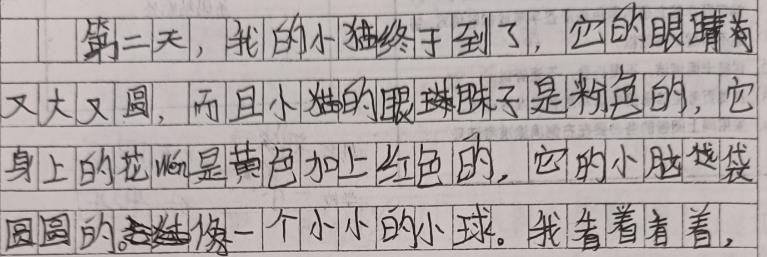 第二天，我的小猫终于到了，它的眼睛为
又大又圆，而且小猫的眼珠子是粉色的，它
身上的花wén是黄色加上红色的，它的小脑袋
圆圆的。像一个小小的小球。我看着看着，